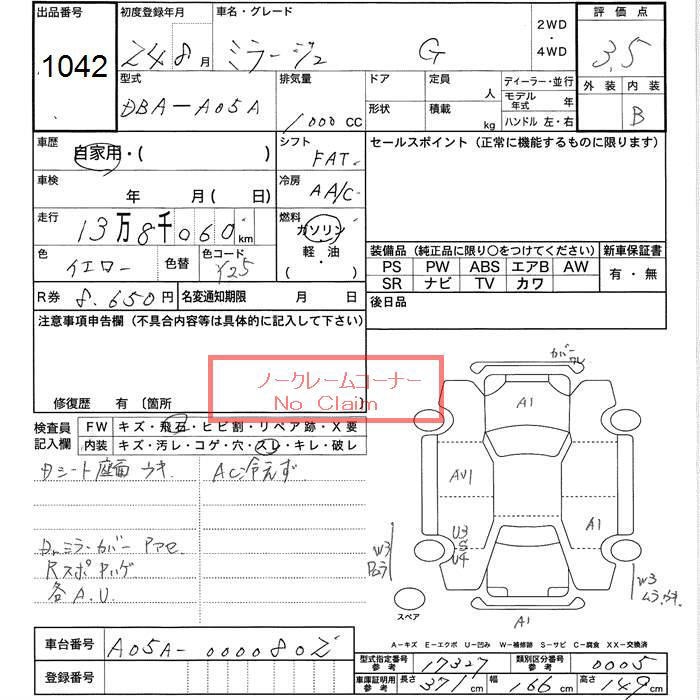 出品番号
1042
初度登録年月
24 8月
車名・グレード
ミラージュ G
2WD
・
4WD
評価点
3.5
外装 内装
B
型式
DBA-A05A
排気量
1000 CC
ドア
形状
定員 人
積載 kg
ディーラー・並行
モデル年式 年
ハンドル 左・右
車歴
自家用・( )
シフト
FAT
セールスポイント (正常に機能するものに限ります)
車検
年 月 ( 日)
冷房
AA/C
走行
13万8千060km
燃料
ガソリン
軽・油
( ・ )
色
イエロー
色替
色コード
Y25
装備品 (純正品に限り〇をつけてください)
PS PW ABS エアB AW
SR ナビ TV カワ
新車保証書
有・無
R券 8.650円
名変通知期限 月 日
後日品
注意事項申告欄 (不具合内容等は具体的に記入して下さい)
ノークレームコーナー
No Claim
修復歴 有 〔箇所 〕
検査員
記入欄
FW キズ・飛石・ヒビ割・リペア跡・X要
内装 キズ・汚レ・コゲ・穴・スレ・キレ・破レ
Dシート座面 ウキ
AC冷えず
ミラーカバー
各A.U.
カバー
A1
AU1
A1
U3
S
U4
W3
W3
A1
スペア
A-キズ E-エクボ U-凹み W-補修跡 S-サビ C-腐食 XX-交換済
車台番号
A05A-0000802
登録番号
型式指定番号
参考
17327
類別区分番号
参考
0005
車庫証明用
参考
長さ 371cm
幅 166cm
高さ 149cm